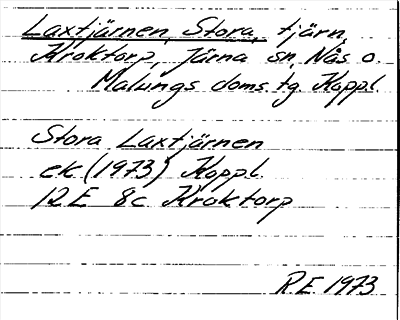 Laxtjärnen, Stora, tjärn,
Kroktorp, Järna sn, Nås o.
Malungs doms.tg Koppl.
Stora Laxtjärnen
ek (1973) Koppl.
12E 8c Kroktorp
R.E. 1973